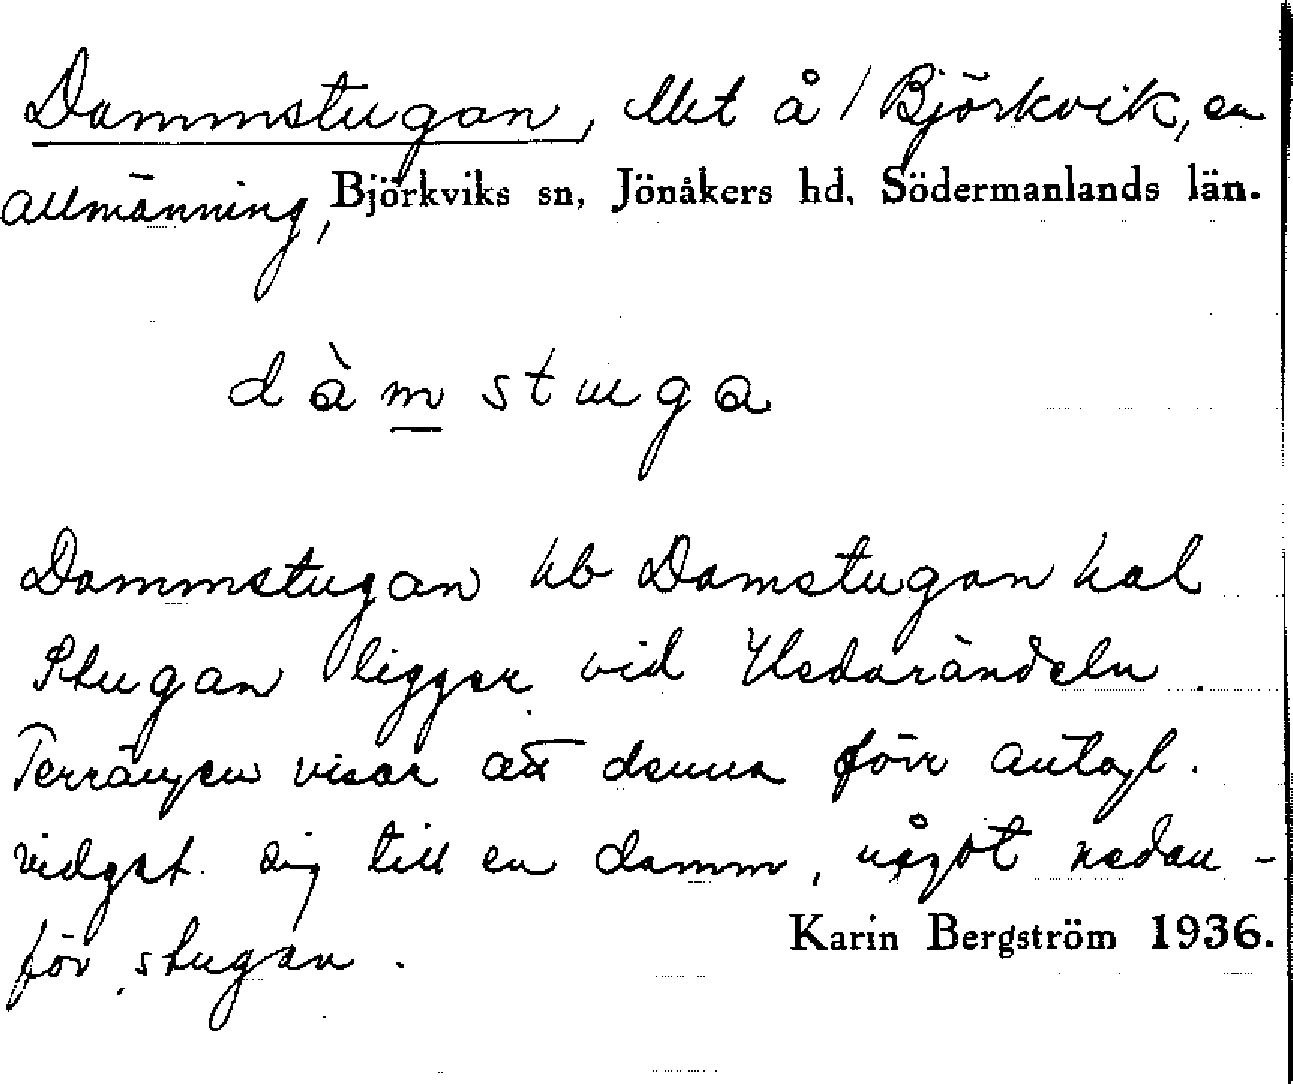 Dammstugan, Utet å / Björkvik, en
allmänning, Björkviks sn, Jönåkers hd, Södermanlands län.
dàmstuga
Dammstugan hb Damstugan hal
Stugan ligger vid
Terrängen visar att denna förr antagl.
vidgat sig till en damm, något nedan-
för stugan.
Karin Bergström 1936.